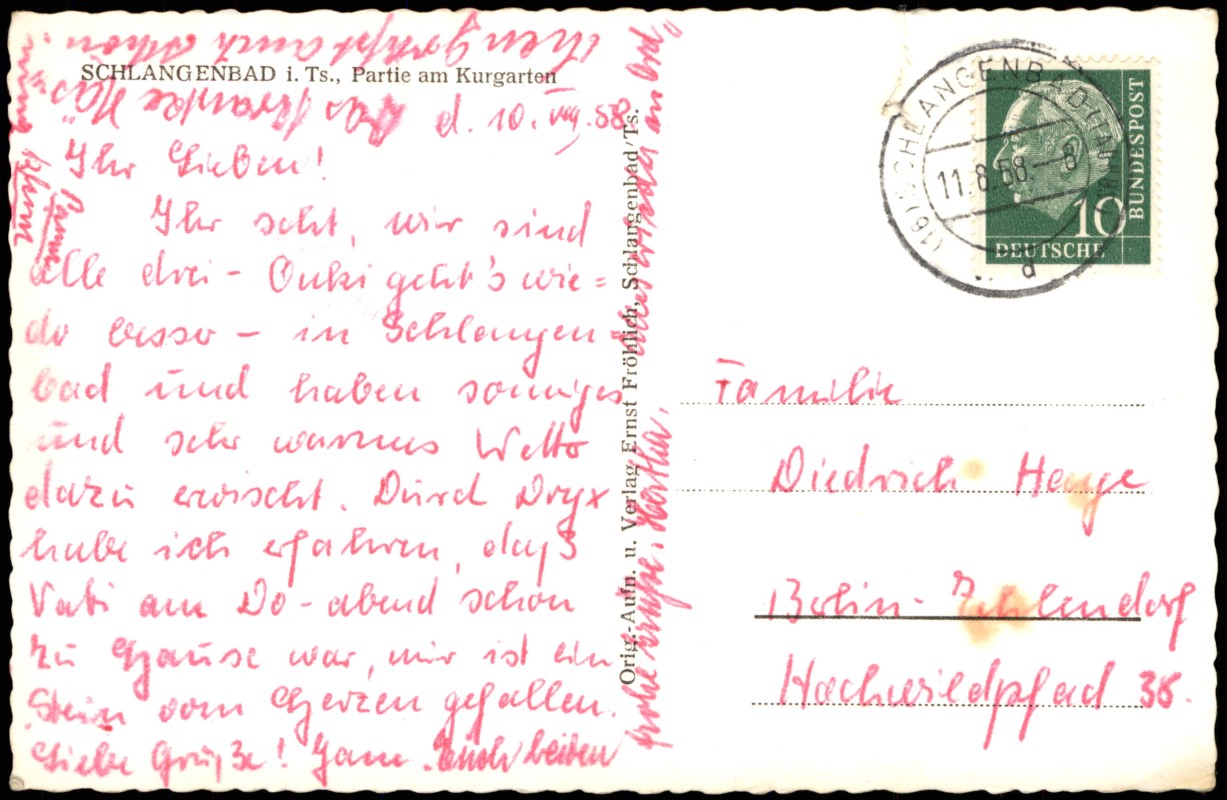 SCHLANGENBAD i. Ts., Partie am Kurgarten
d. 10. VIII. 58.
Ihr Lieben!
Ihr seht, wir sind
alle drei - Onki geht's wie=
der besser - in Schlangen=
bad und haben sonniges
und sehr warmes Wetter
dazu erwischt. Durch
habe ich erfahren, daß
Vati am Do-abend schon
zu Hause war, mir ist ein
Stein vom Herzen gefallen.
Liebe Grüße! Euch beiden
frohe Grüße. Hertha.
Orig.-Aufn. u. Verlag Ernst Fröhlich, Schlangenbad/Ts.
(16) SCHLANGENBAD
11.8.58-8
d
10
DEUTSCHE
BUNDESPOST
Familie
Diedrich
Berlin-Zehlendorf
Hochwildpfad 38.